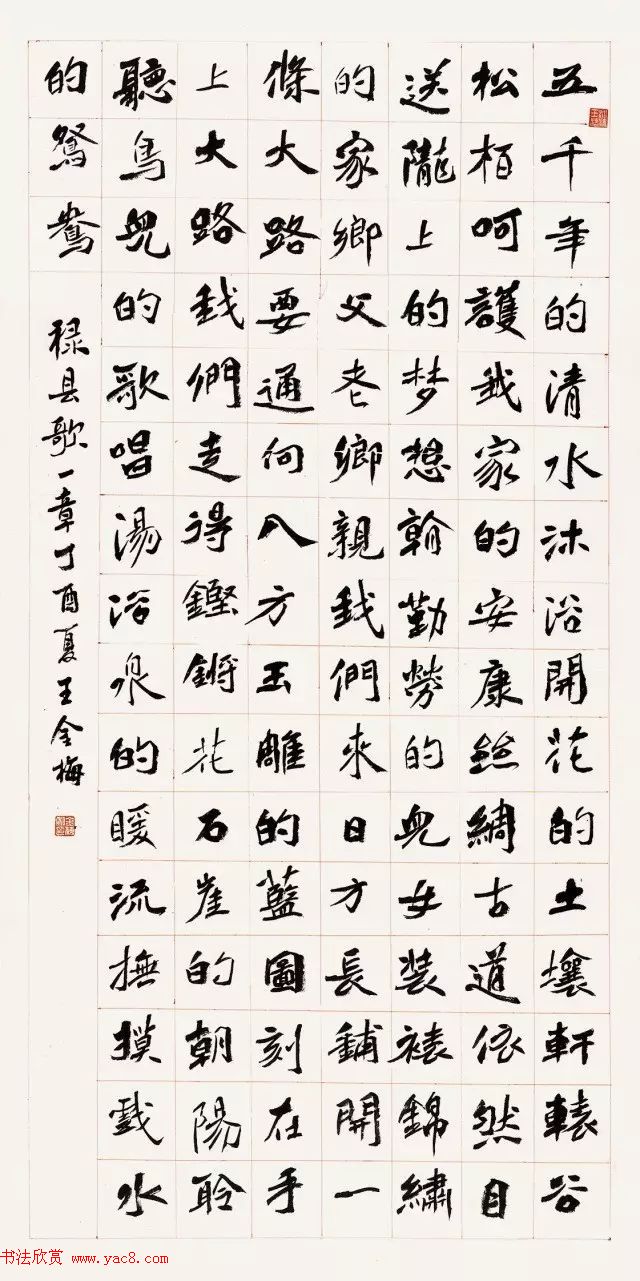 五千年的清水沐浴開花的土壤軒轅谷
松柏呵護我家的安康絲綢古道依然目
送隴上的梦想翰勤勞的兒女装裱錦繡
的家鄉父老鄉親我們來日方長鋪開一
條大路要通向八方玉雕的藍圖刻在手
上大路我們走得鏗鏘花石崖的朝陽聆
聽鳥兒的歌唱湯浴泉的暖流撫摸戲水
的鴛鴦
歌一章丁酉夏王金梅
书法欣赏 www.yac8.com